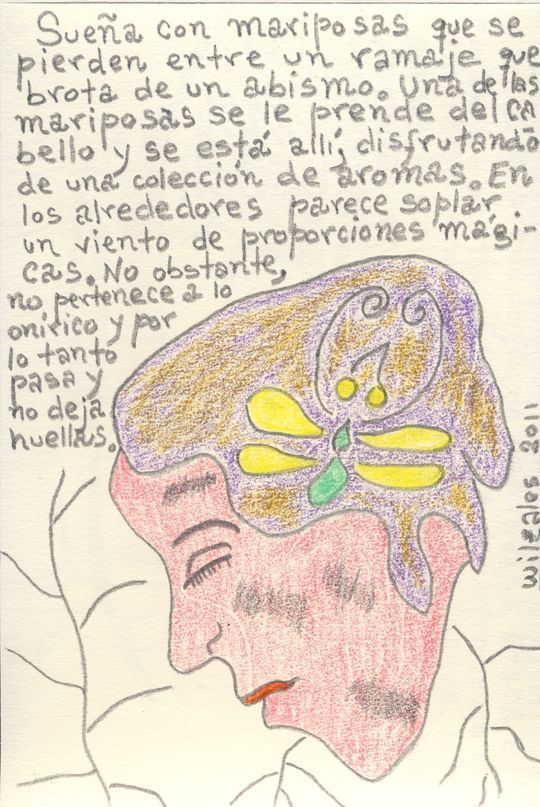 Sueña con mariposas que se
pierden entre un ramaje que
brota de un abismo. Una de las
mariposas se le prende del ca
bello y se está allí, disfrutando
de una colección de aromas. En
los alrededores parece soplar
un viento de proporciones mági-
cas. No obstante,
no pertenece a lo
onírico y por
lo tanto
pasa y
no deja
huellas.
wilgales 2011